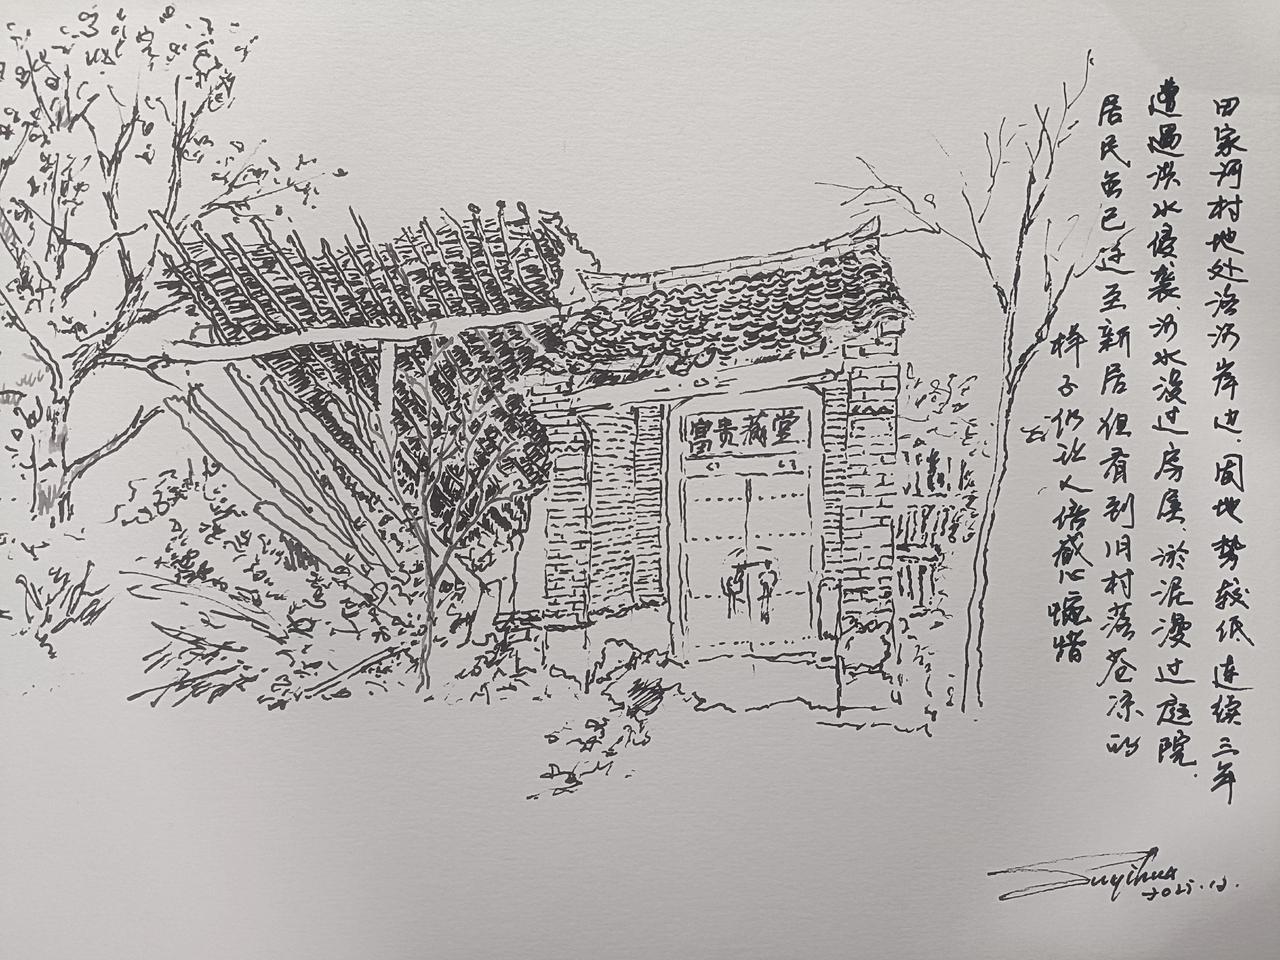 田家河村地处洛河岸边.因地势较低连续三年
遭遇洪水侵袭.河水没过房屋.淤泥漫过庭院.
居民虽已迁至新居但看到旧村落苍凉的
样子仍让人倍感心痛惋惜
富贵满堂
2025.12.